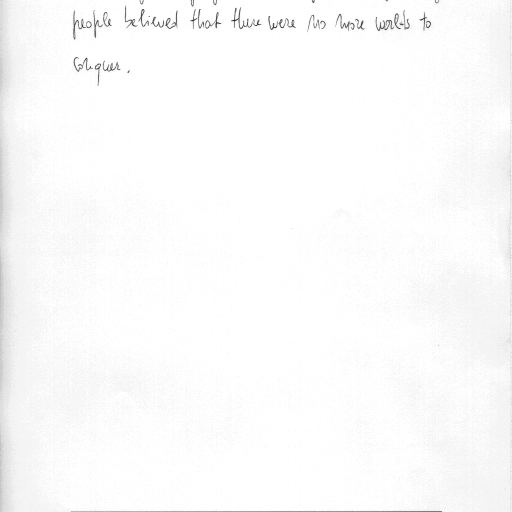 people believed that there were no more worlds to
conquer.